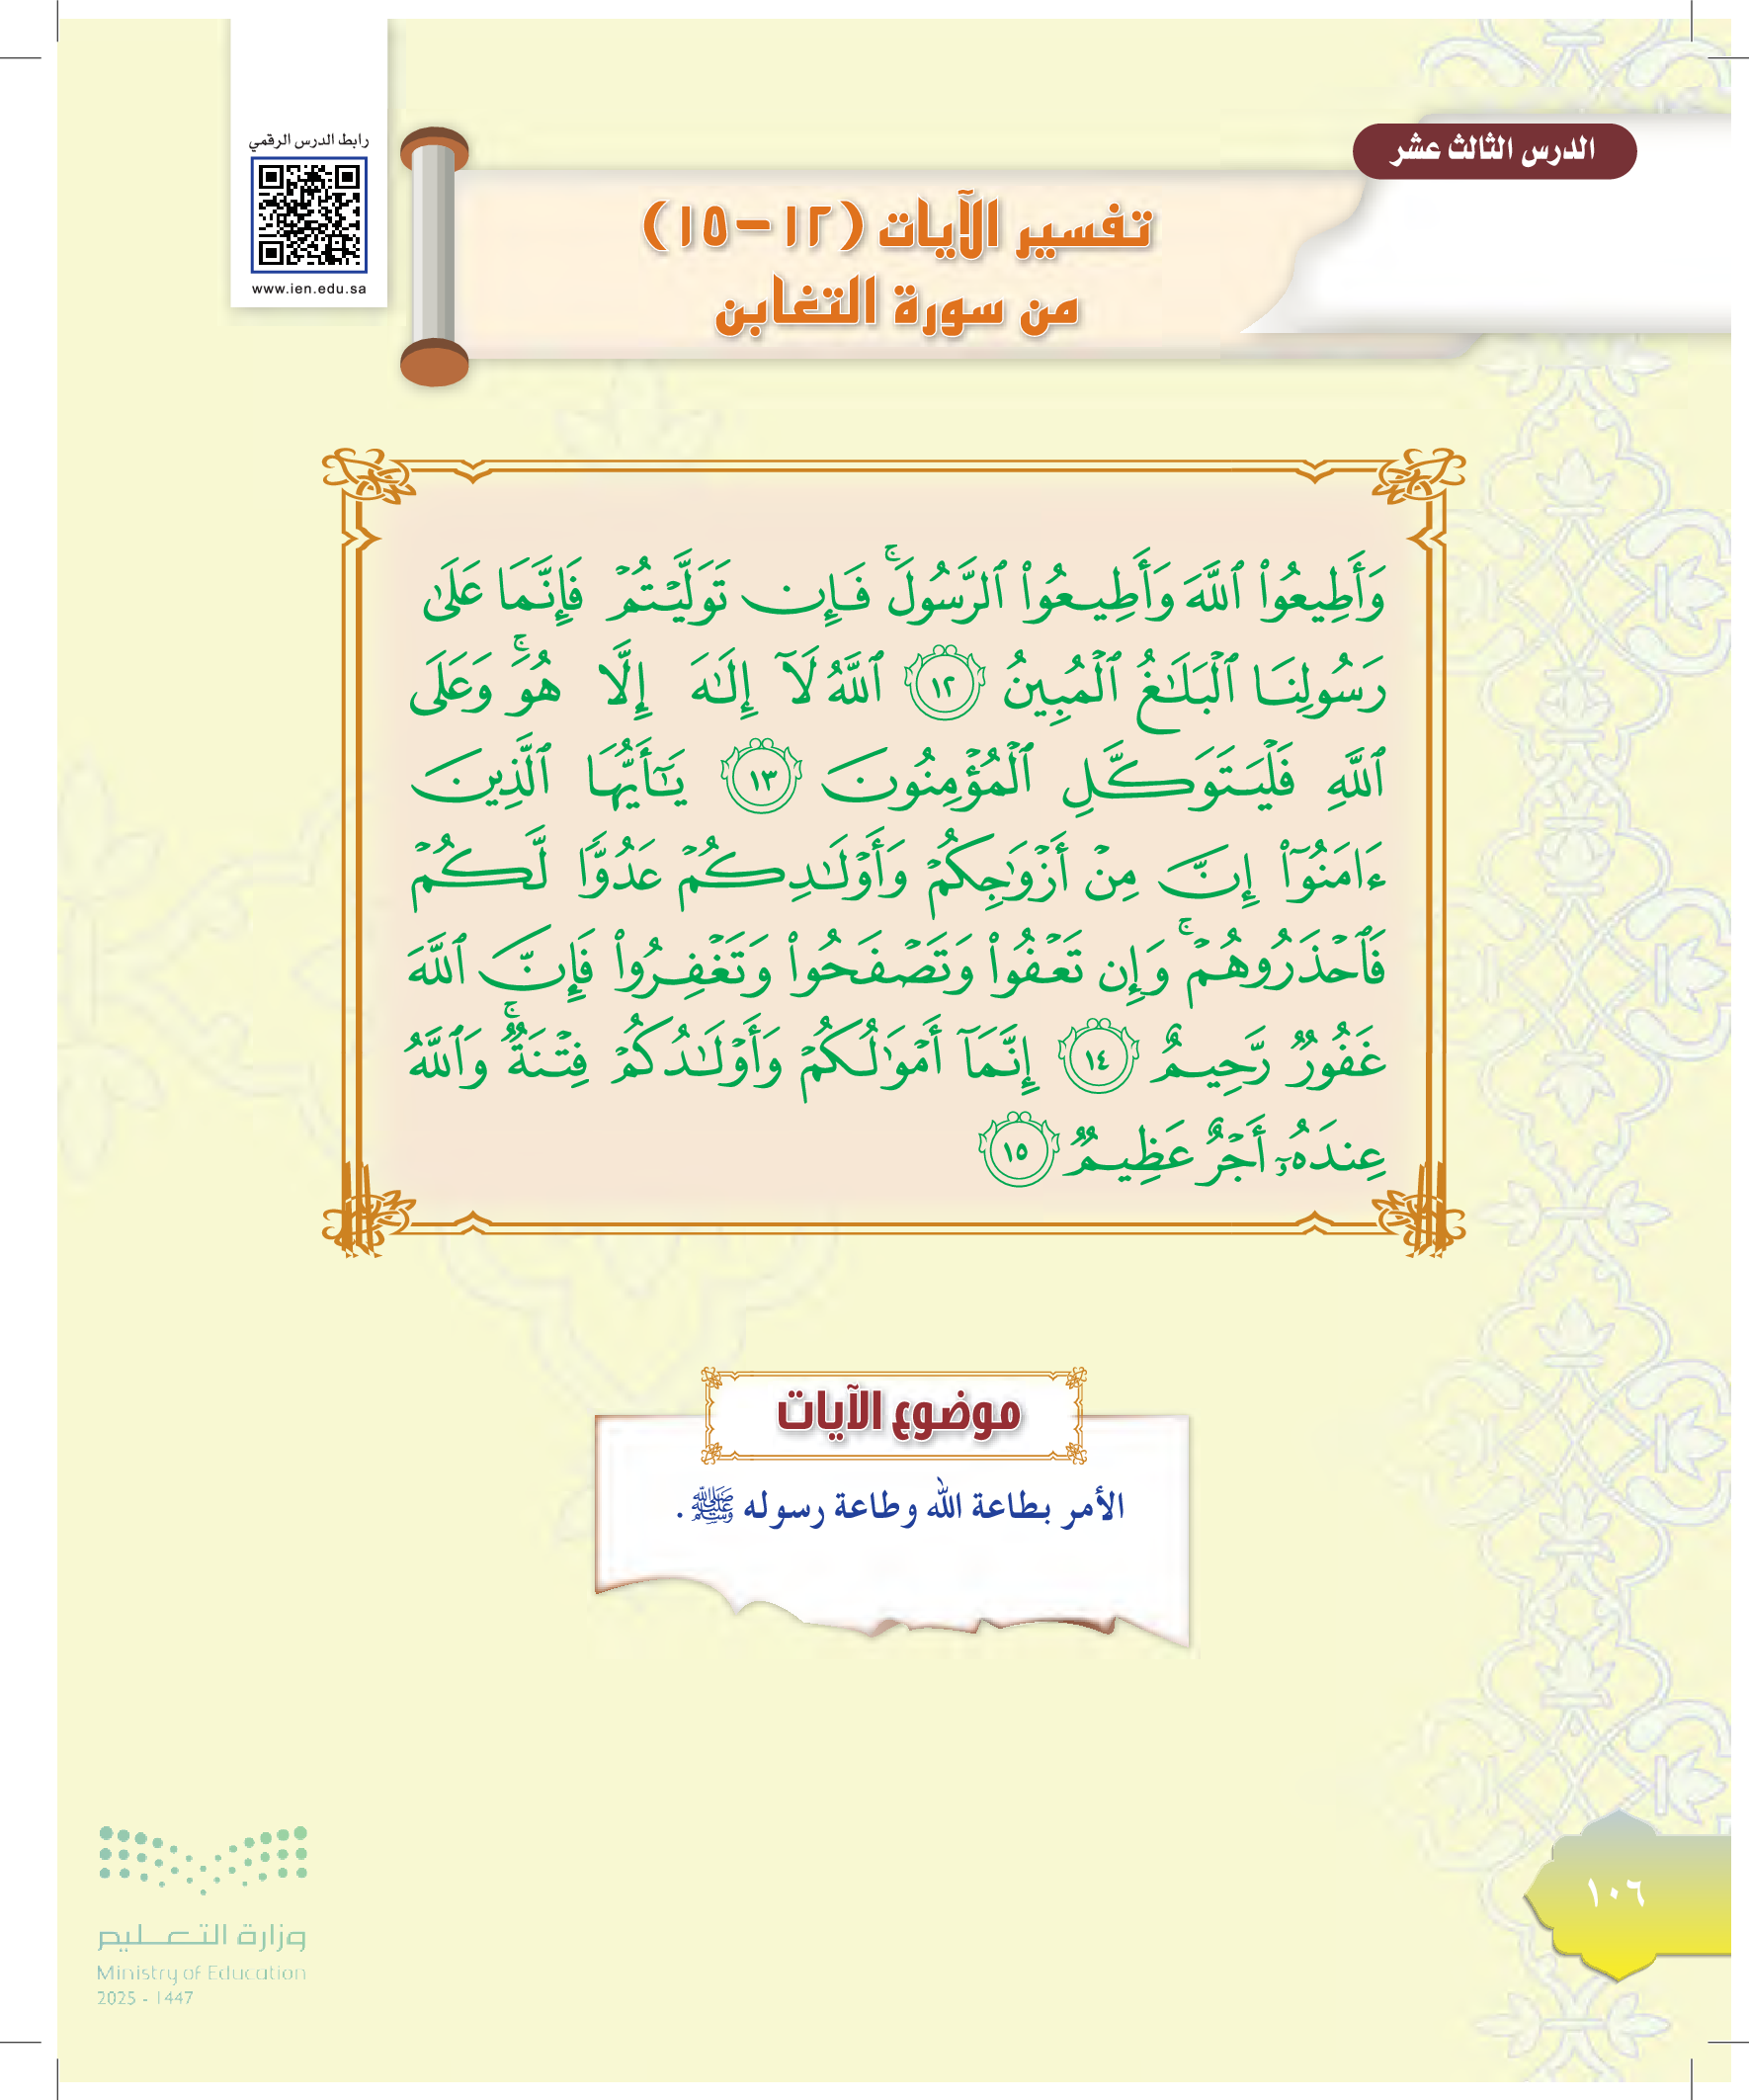 الدرس الثالث عشر
رابط الدرس الرقمي
www.ien.edu.sa
تفسير الآيات (١٢-١٥)
من سورة التغابن
وَأَطِيعُوا۟ ٱللَّهَ وَأَطِيعُوا۟ ٱلرَّسُولَۚ فَإِن تَوَلَّيْتُمْ فَإِنَّمَا عَلَىٰ
رَسُولِنَا ٱلْبَلَٰغُ ٱلْمُبِينُ ١٢ ٱللَّهُ لَآ إِلَٰهَ إِلَّا هُوَۚ وَعَلَى
ٱللَّهِ فَلْيَتَوَكَّلِ ٱلْمُؤْمِنُونَ ١٣ يَٰٓأَيُّهَا ٱلَّذِينَ
ءَامَنُوٓا۟ إِنَّ مِنْ أَزْوَٰجِكُمْ وَأَوْلَٰدِكُمْ عَدُوًّا لَّكُمْ
فَٱحْذَرُوهُمْۚ وَإِن تَعْفُوا۟ وَتَصْفَحُوا۟ وَتَغْفِرُوا۟ فَإِنَّ ٱللَّهَ
غَفُورٌ رَّحِيمٌ ١٤ إِنَّمَآ أَمْوَٰلُكُمْ وَأَوْلَٰدُكُمْ فِتْنَةٌۚ وَٱللَّهُ
عِندَهُۥٓ أَجْرٌ عَظِيمٌ ١٥
موضوع الآيات
الأمر بطاعة الله وطاعة رسوله ﷺ.
١٠٦
وزارة التعليم
Ministry of Education
2025 - 1447